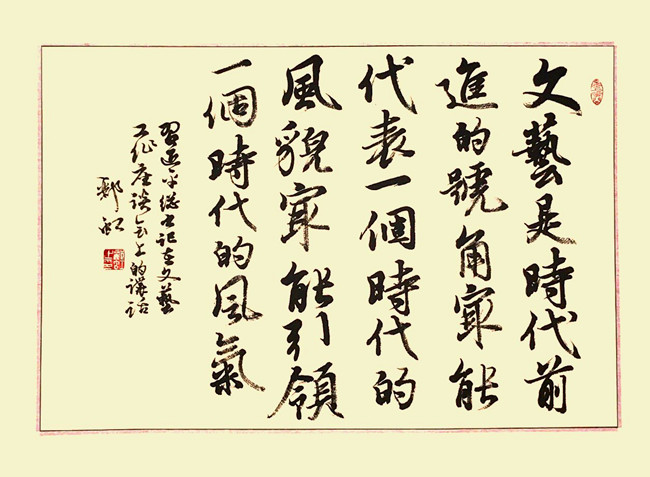 文藝是時代前
進的號角寂能
代表一個時代的
風貌寂能引領
一個時代的風氣
習近平總書記在文藝
工作座談會上的講話
鄭虹